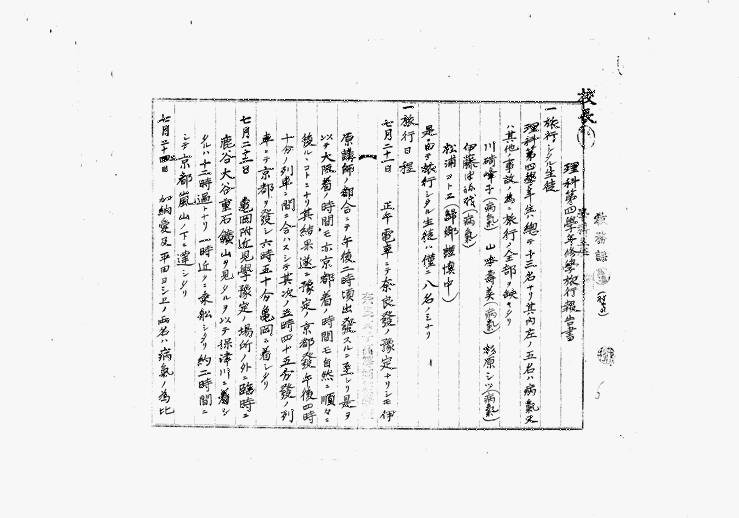 校長
教務課
理科第四學年修學旅行報告書
一 旅行シタル生徒
理科第四學年生ハ總テ十三名ナリ其內左ノ五名ハ病氣又
ハ其他ノ事故ノ為ニ旅行ノ全部ヲ缺キタリ
川崎峯子(病氣) 山本壽美(病氣) 杉原シヅ(病氣)
伊藤 (病氣)
松浦コトエ(歸鄉 中)
是由テ旅行シタル生徒ハ僅ニ八名ノミナリ
一 旅行日程
七月二十一日 正午電車ニテ奈良發ノ豫定ナリシモ伊
原講師ノ都合ニテ午後二時頃出發スルニ至レリ是ヲ
以テ大阪着ノ時間モ亦京都着ノ時間モ自然ニ順々ニ
後ルヽコトニナリ其結果遂ニ豫定ノ京都發午後四時
十分ノ列車ノ間ニ合ハスシテ其次ノ五時四十五分發ノ列
車ニテ京都ヲ發シ六時五十分亀岡ニ着シタリ
七月二十二日 亀岡附近見學豫定ノ場所ノ外ニ臨時ニ
鹿谷大谷重石鑛山ヲ見タルヲ以テ保津川ニ着シ
タルハ十二時過トナリ一時近ク乘船シタリ約二時間ニ
シテ京都嵐山ノ下ニ達シタリ
七月二十四日 加納愛及平田ヨシヱノ両名ハ病氣ノ為比